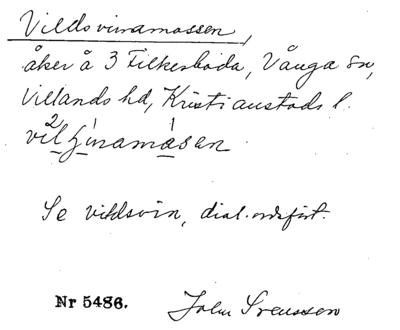 Vildsvinamossen,
åker å 3 Filkesboda, Vånga sn,
Villands hd, Kristianstads l.
Se vildsvin, dial. ordsfört.
Nr 5486. John Svensson